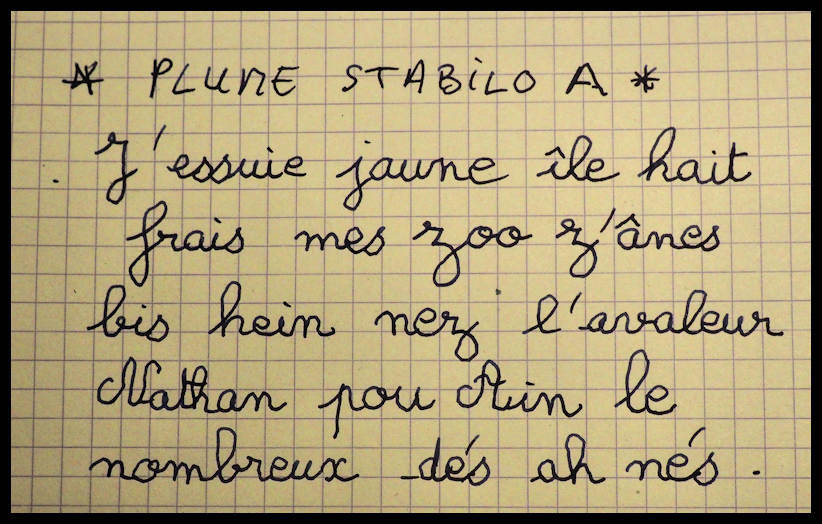 * PLUME STABILO A *
J'essuie jaune île hait
frais mes zoo z'ânes
bis hein nez l'avaleur
Nathan pou Ain le
nombreux dés ah nés.